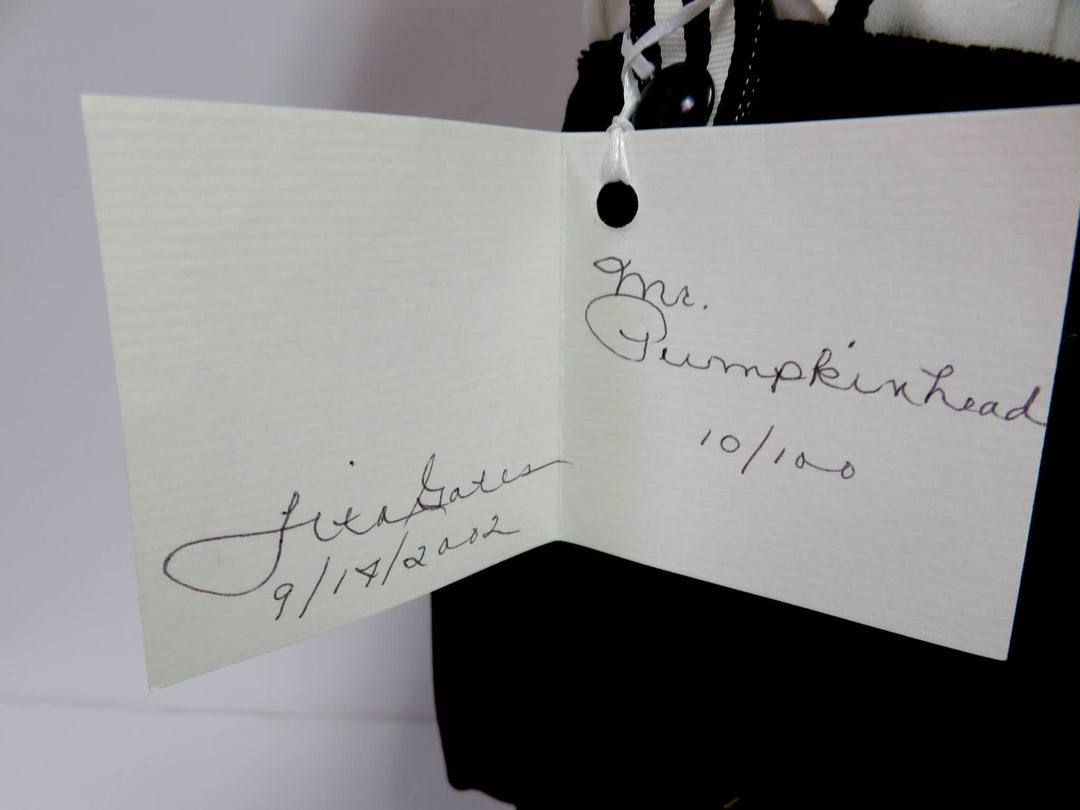 Tita Gates
9/14/2002
Mr.
Pumpkinhead
10/100